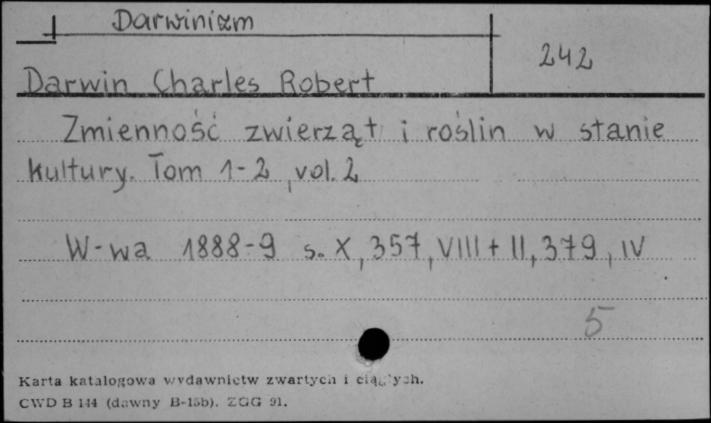 Darwinizm
242
Darwin Charles Robert
Zmienność zwierząt i roślin w stanie
kultury. Tom 1-2, vol. 2
W-wa 1888-9 s. X, 357, VIII + II, 379, IV
5
Karta katalogowa wydawnictw zwartych i ciągłych.
CWD B 144 (dawny B-15b). ZGG 91.